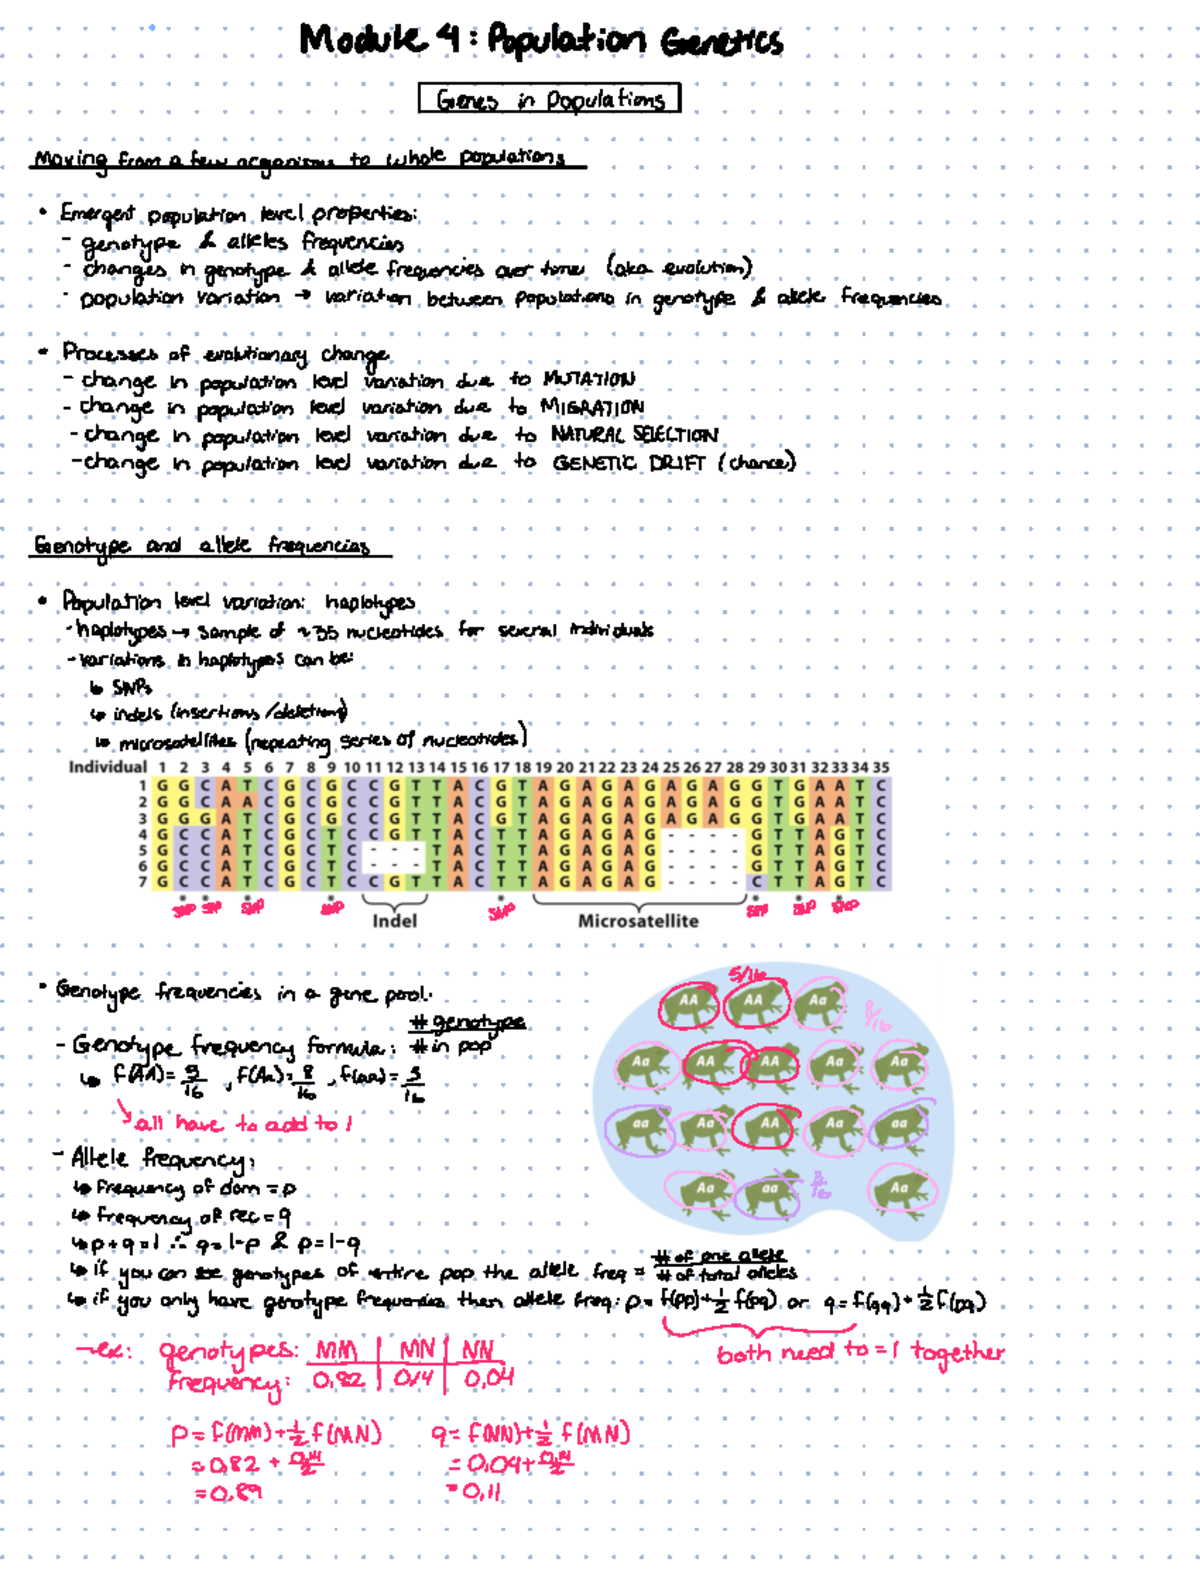 Module 4: Population Genetics
Genes in Populations
Moving from a few organisms to whole populations
• Emergent population level properties:
- genotype & alleles frequencies
- changes in genotype & allele frequencies over time (aka evolution)
- population variation → variation between populations in genotype & allele frequencies
• Processes of evolutionary change
- change in population level variation due to MUTATION
- change in population level variation due to MIGRATION
- change in population level variation due to NATURAL SELECTION
- change in population level variation due to GENETIC DRIFT (chance)
Genotype and allele frequencies
• Population level variation: haplotypes
- haplotypes → sample of ~35 nucleotides for several individuals
- variations in haplotypes can be:
↳ SNPs
↳ indels (insertions/deletions)
↳ microsatellites (repeating series of nucleotides)
Individual 1 2 3 4 5 6 7 8 9 10 11 12 13 14 15 16 17 18 19 20 21 22 23 24 25 26 27 28 29 30 31 32 33 34 35
1 G G C A T C G C G C C G T T A C G T A G A G A G A G A G G T G A A T C
2 G G C A A C G C G C C G T T A C G T A G A G A G A G A G G T G A A T C
3 G G G A T C G C G C C G T T A C G T A G A G A G A G A G G T G A A T C
4 G C C A T C G C T C C G T T A C T T A G A G A G - - - - G T T A G T C
5 G C C A T C G C T C - - - T A C T T A G A G A G - - - - G T T A G T C
6 G C C A T C G C T C - - - T A C T T A G A G A G - - - - G T T A G T C
7 G C C A T C G C T C C G T T A C T T A G A G A G - - - - C T T A G T C
SNP SNP SNP SNP SNP SNP SNP SNP
Indel Microsatellite
• Genotype frequencies in a gene pool:
- Genotype frequency formula: # genotype / # in pop
↳ f(AA) = 5/16, f(Aa) = 8/16, f(aa) = 3/16
all have to add to 1
5/16
AA AA Aa
8/16
Aa AA AA Aa Aa
aa Aa AA Aa aa
Aa aa 3/16 Aa
- Allele frequency:
↳ frequency of dom = p
↳ frequency of rec = q
↳ p+q=1 ∴ q=1-p & p=1-q
↳ if you can see genotypes of entire pop the allele freq = # of one allele / # of total alleles
↳ if you only have genotype frequencies then allele freq: p = f(pp)+½ f(pq) or q = f(qq)+½ f(pq)
both need to =1 together
→ex: genotypes: MM | MN | NN
frequency: 0,82 | 0,14 | 0,04
p = f(MM)+½ f(MN) q = f(NN)+½ f(MN)
= 0,82 + 0,14/2 = 0,04 + 0,14/2
= 0,89 = 0,11